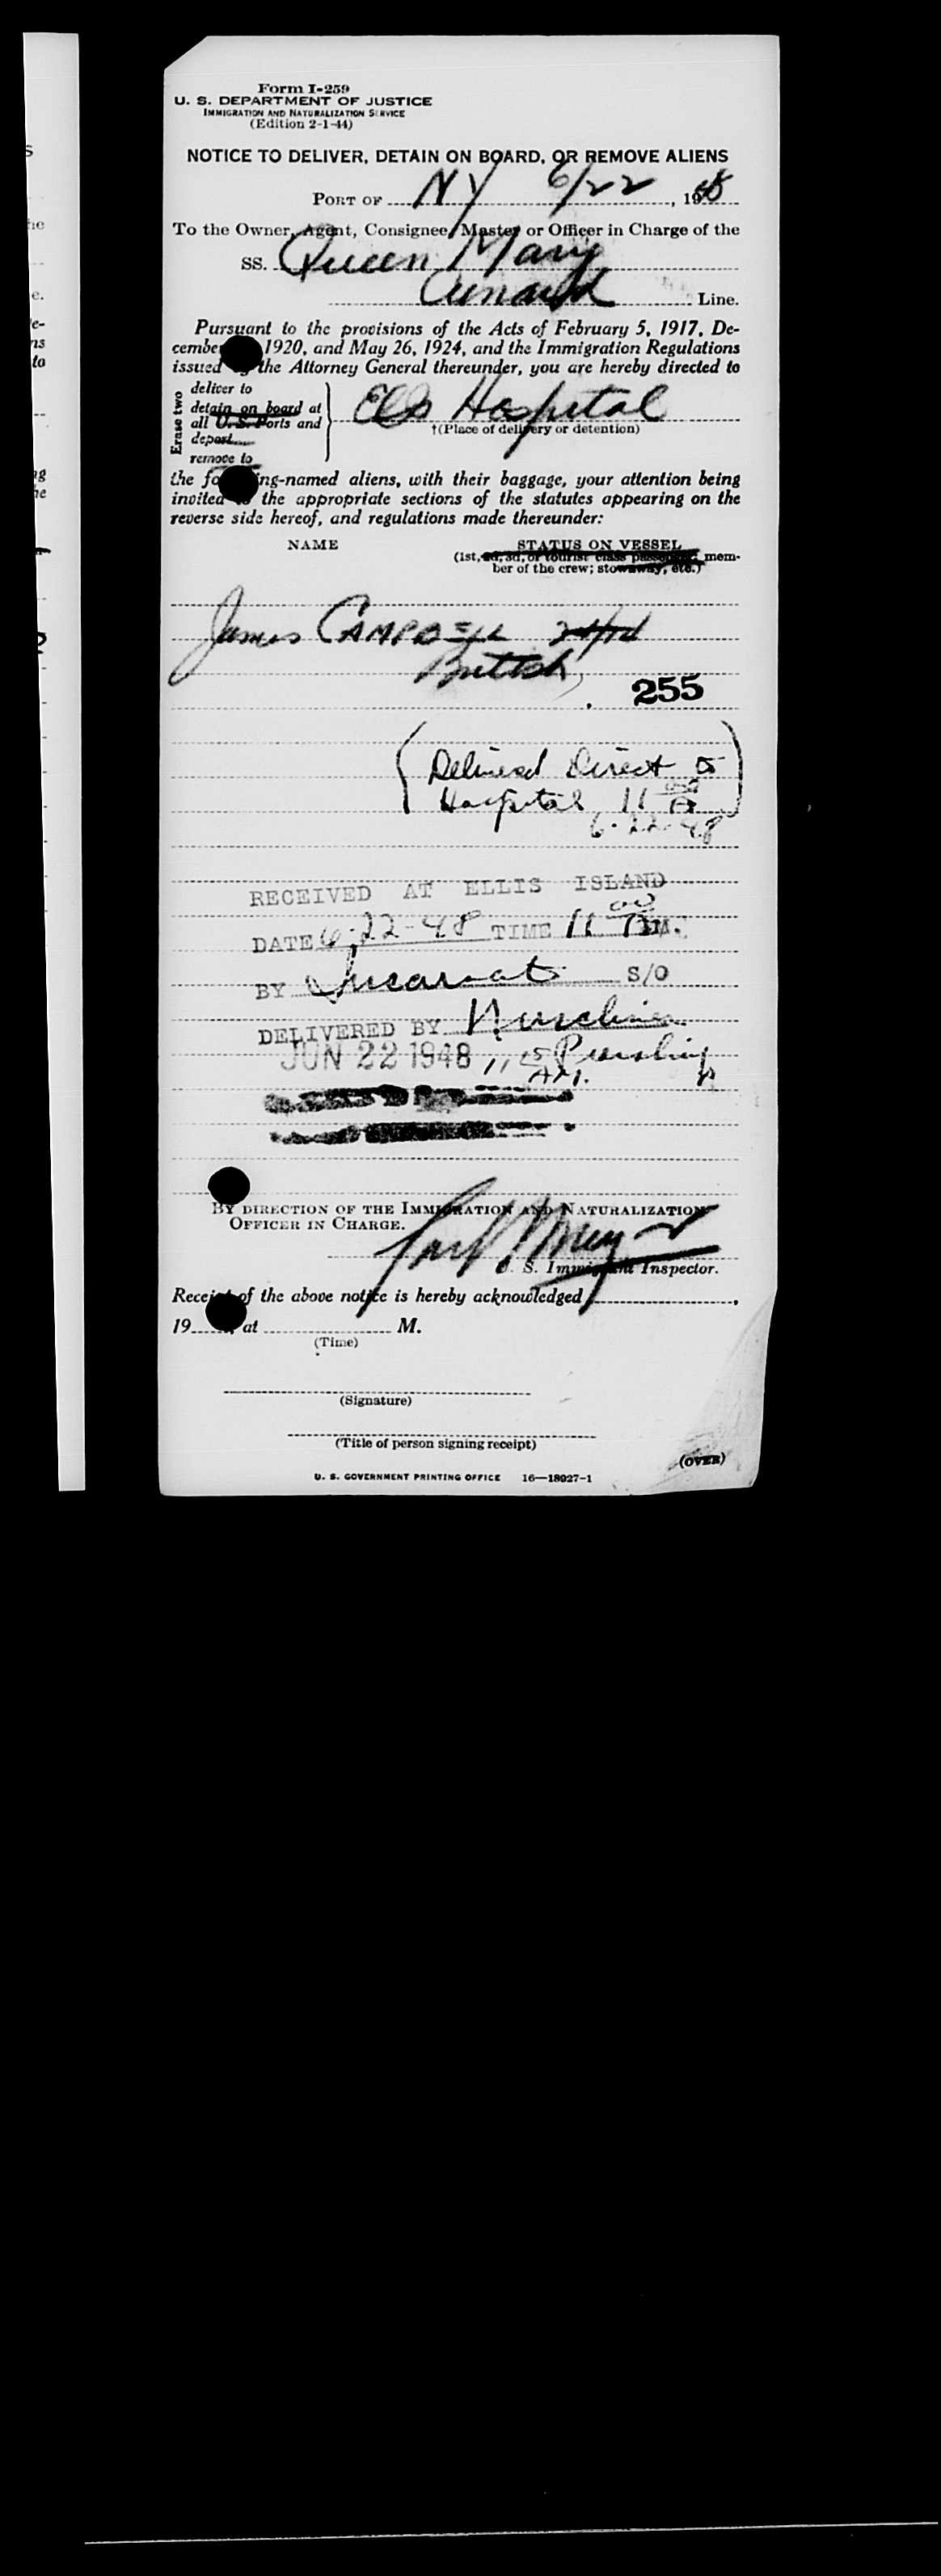 Form I-259
U. S. DEPARTMENT OF JUSTICE
IMMIGRATION AND NATURALIZATION SERVICE
(Edition 2-1-44)
NOTICE TO DELIVER, DETAIN ON BOARD, OR REMOVE ALIENS
PORT OF NY 6/22, 1948
To the Owner, Agent, Consignee, Master or Officer in Charge of the
SS. Queen Mary
Cunard Line.
Pursuant to the provisions of the Acts of February 5, 1917, De-
cembe 1920, and May 26, 1924, and the Immigration Regulations
issued the Attorney General thereunder, you are hereby directed to
Erase two
deliver to
detain on board at
all U. S. Ports and
deport
remove to
Hospital
†(Place of delivery or detention)
the fo ing-named aliens, with their baggage, your attention being
invited the appropriate sections of the statutes appearing on the
reverse side hereof, and regulations made thereunder:
NAME STATUS ON VESSEL
(1st, 2d, 3d, or tourist class passenger; mem-
ber of the crew; stowaway, etc.)
James CAMPBELL
British
255
(Delivered Direct to
Hospital 11 00 A)
6-22-48
RECEIVED AT ELLIS ISLAND
DATE 6-22-48 TIME 11 00 M.
BY S/O
DELIVERED BY
JUN 22 1948 11 25 AM.
BY DIRECTION OF THE IMMIGRATION AND NATURALIZATION
OFFICER IN CHARGE.
U. S. Immigrant Inspector.
Receipt of the above notice is hereby acknowledged ,
19 , at M.
(Time)
(Signature)
(Title of person signing receipt)
(OVER)
U. S. GOVERNMENT PRINTING OFFICE 16—18027-1